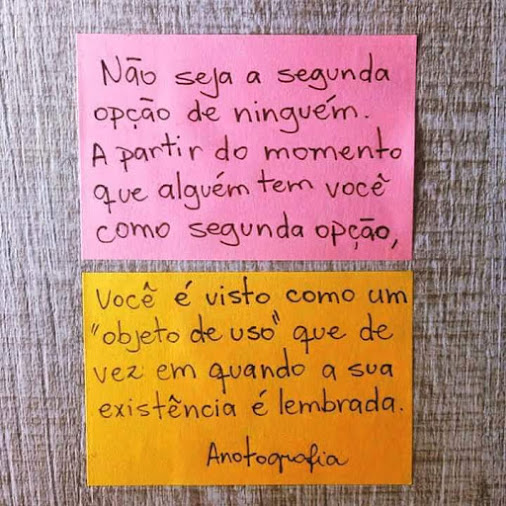 Não seja a segunda
opção de ninguém.
A partir do momento
que alguém tem você
como segunda opção,
Você é visto como um
"objeto de uso" que de
vez em quando a sua
existência é lembrada.
Anotografia